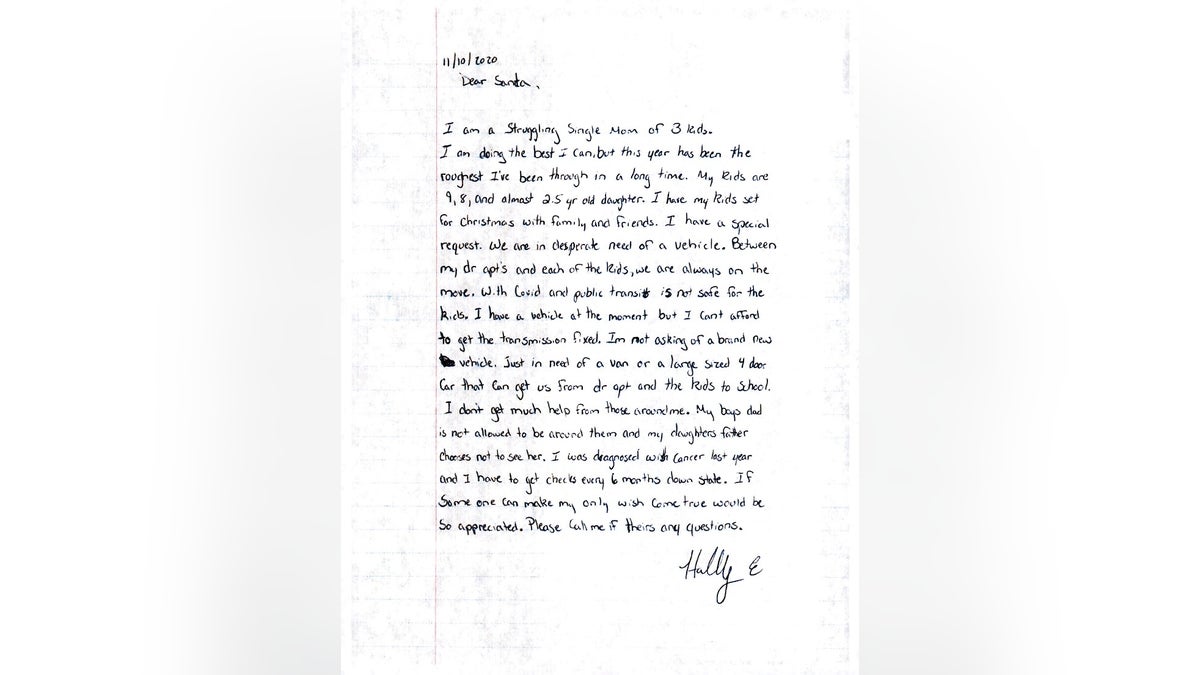 11/10/2020
Dear Santa,
I am a Struggling Single Mom of 3 kids.
I am doing the best I can, but this year has been the
roughest I've been through in a long time. My kids are
9, 8, and almost 2.5 yr old daughter. I have my kids set
for Christmas with family and friends. I have a special
request. We are in desperate need of a vehicle. Between
my dr apt's and each of the kids, we are always on the
move. With Covid and public transit is not safe for the
kids. I have a vehicle at the moment but I cant afford
to get the transmission fixed. Im not asking of a brand new
vehicle. Just in need of a van or a large sized 4 door
Car that can get us from dr apt and the kids to school.
I don't get much help from those around me. My boys dad
is not allowed to be around them and my daughters father
chooses not to see her. I was diagnosed with cancer last year
and I have to get checks every 6 months down state. If
Some one can make my only wish come true would be
So appreciated. Please Call me if theirs any questions.
Hally E